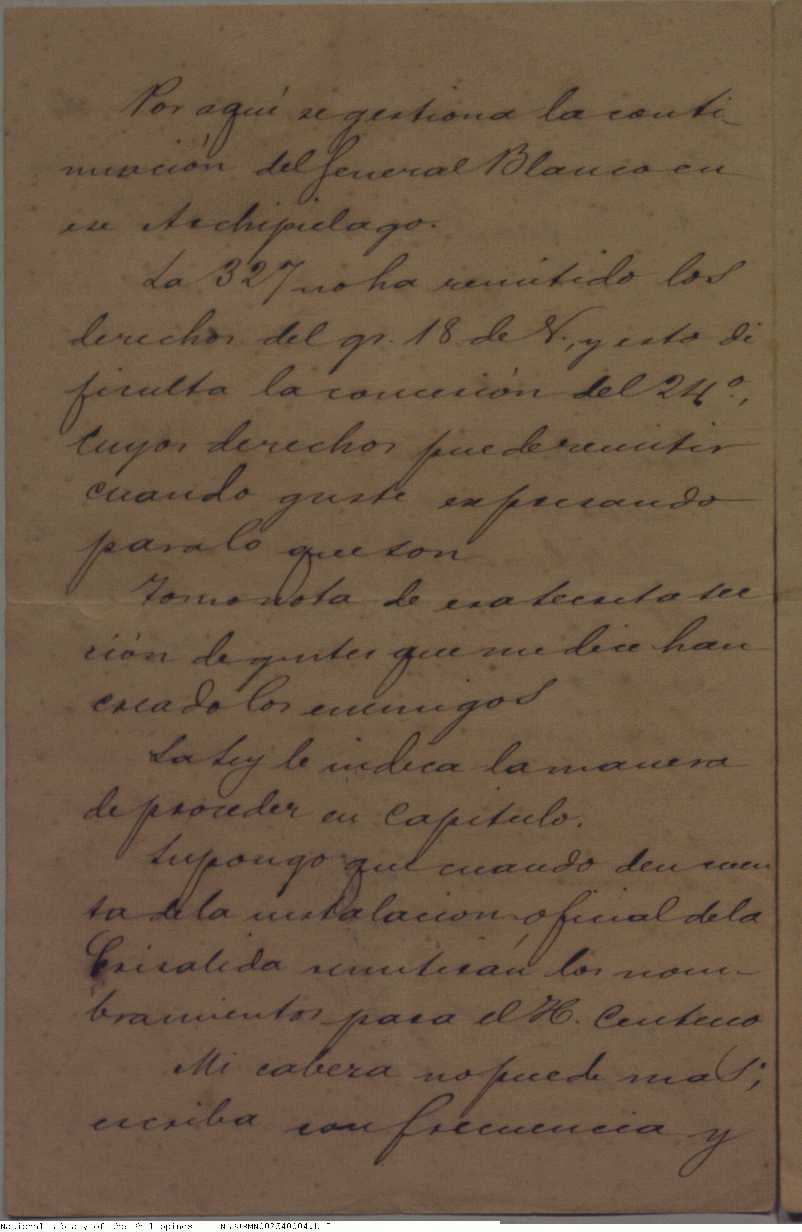 Por aqui se gestiona la conti-
nuación del General Blanco en
ese Archipielago.
La 327 no ha remitido los
derechos del gr. 18 de N., y esto di
ficulta la concesión del 24º.,
cuyos derechos puede remitir
cuando guste expresando
para lo que son
Tomo nota de esa secreta sec
ción de gentes que me dice han
creado los enemigos
La Ley le indica la manera
de proceder en Capitulo.
Supongo que cuando den cuen
ta de la instalacion oficial de la
Crisalida remitirán los nom-
bramientos para el H. Centeno
Mi cabeza no puede mas;
escriba con frecuencia y
National Library of the Philippines